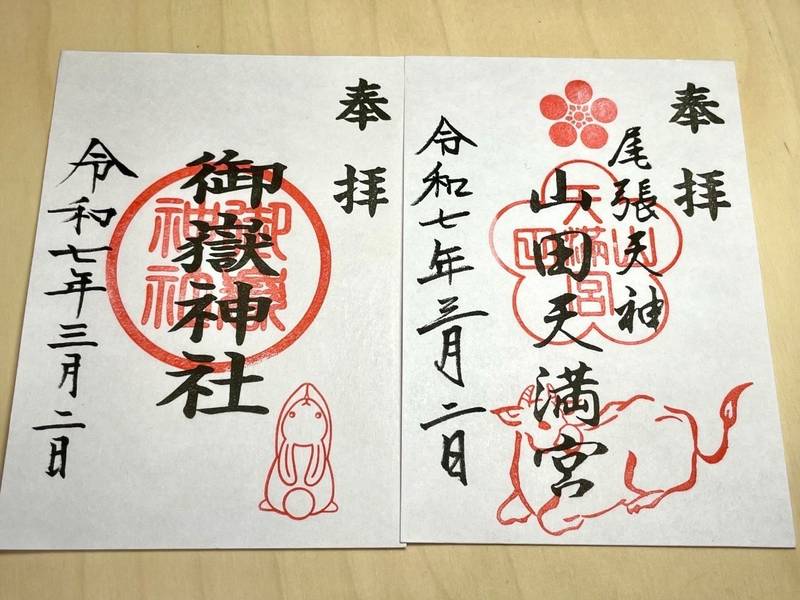 奉拝
御嶽神社
御嶽神社
令和七年三月二日
奉拝
尾張天神
山田天満宮
山田天満宮
令和七年三月二日